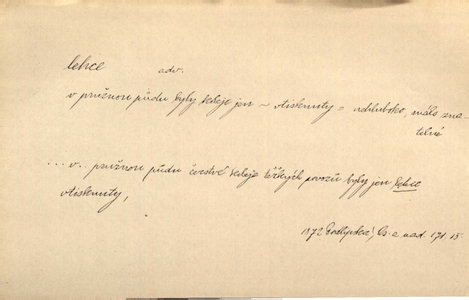 lehce adv.
v pružnou půdu byly koleje jen ~ vtisknuty = nehluboko, málo zna-
telně
... v pružnou půdu čerstvé koleje těžkých povozů byly jen lehce
vtisknuty,
1872 Podlipská, Os. a nad. 171. 15.